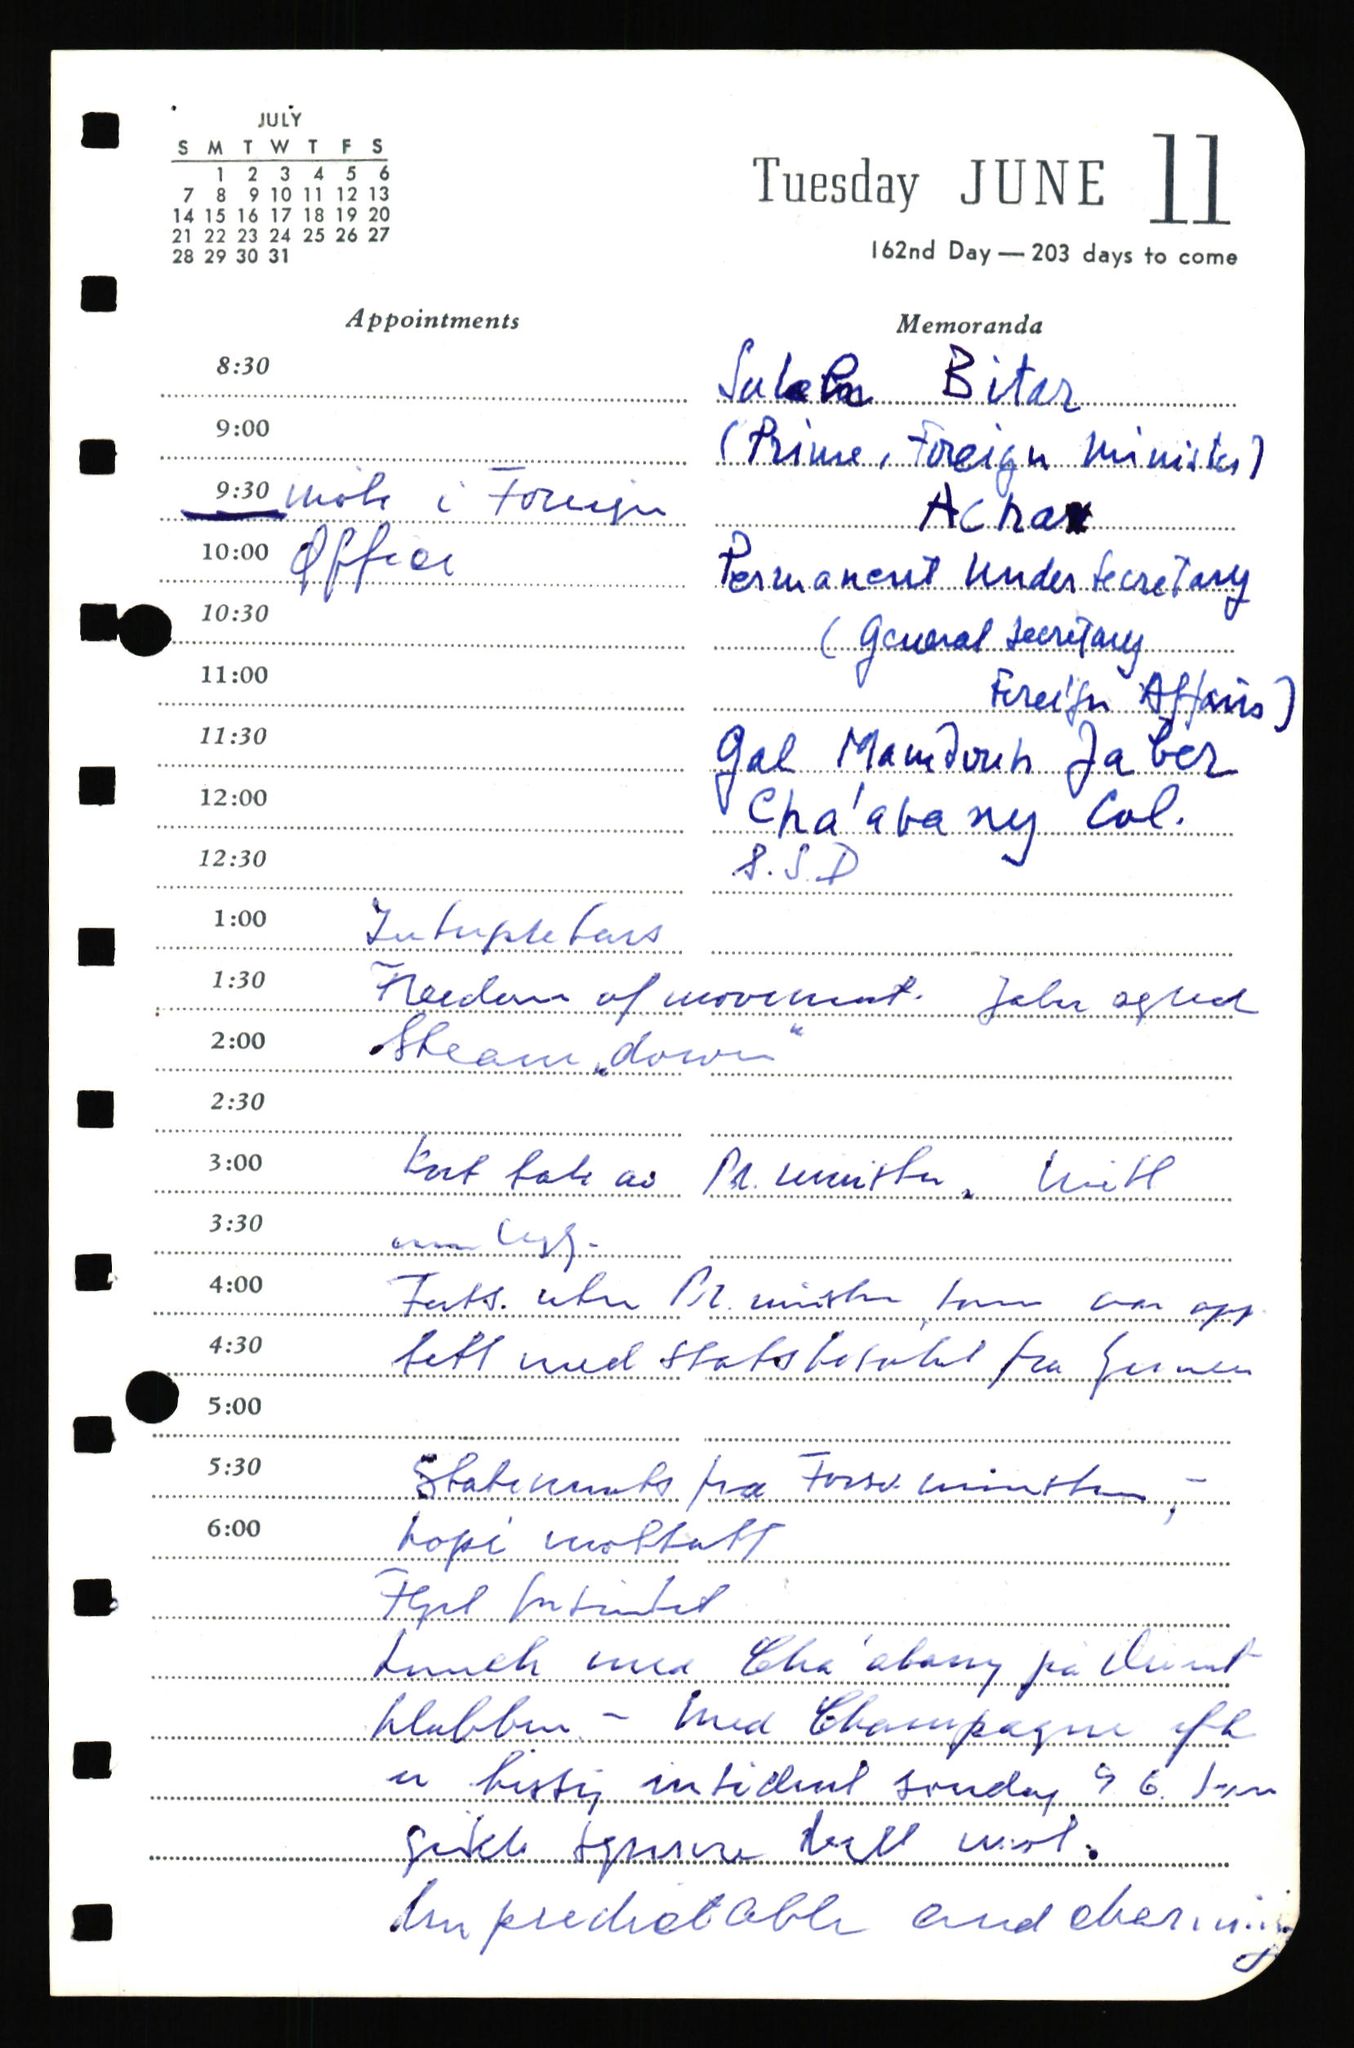 JULY
S M T W T F S
1 2 3 4 5 6
7 8 9 10 11 12 13
14 15 16 17 18 19 20
21 22 23 24 25 26 27
28 29 30 31
Tuesday JUNE 11
162nd Day — 203 days to come
Appointments
8:30
9:00
9:30 møte i Foreign
10:00 Office
10:30
11:00
11:30
12:00
12:30
Memoranda
Bitar
(Prime, Foreign Minister)
Permanent Under Secretary
(General Secretary
Foreign Affairs)
Gal Mamdouh Jaber
Cha'abany Col.
S.S.D
1:00 Interpreters
1:30 Freedom of movement. Jaber agreed
2:00 Steam „down"
2:30
3:00 Kort tale av Pr. minister.
3:30
4:00 Forts. uten Pr. minister, som var opp
4:30 tatt med statsbesøket fra Yemen
5:00
5:30 Statements fra Forsv. ministeren, -
6:00 kopi mottatt
Lunch med Cha'abany på
klubben - Med Champagne
intident søndag 9 6. som
gikk
Unpredictable and charming